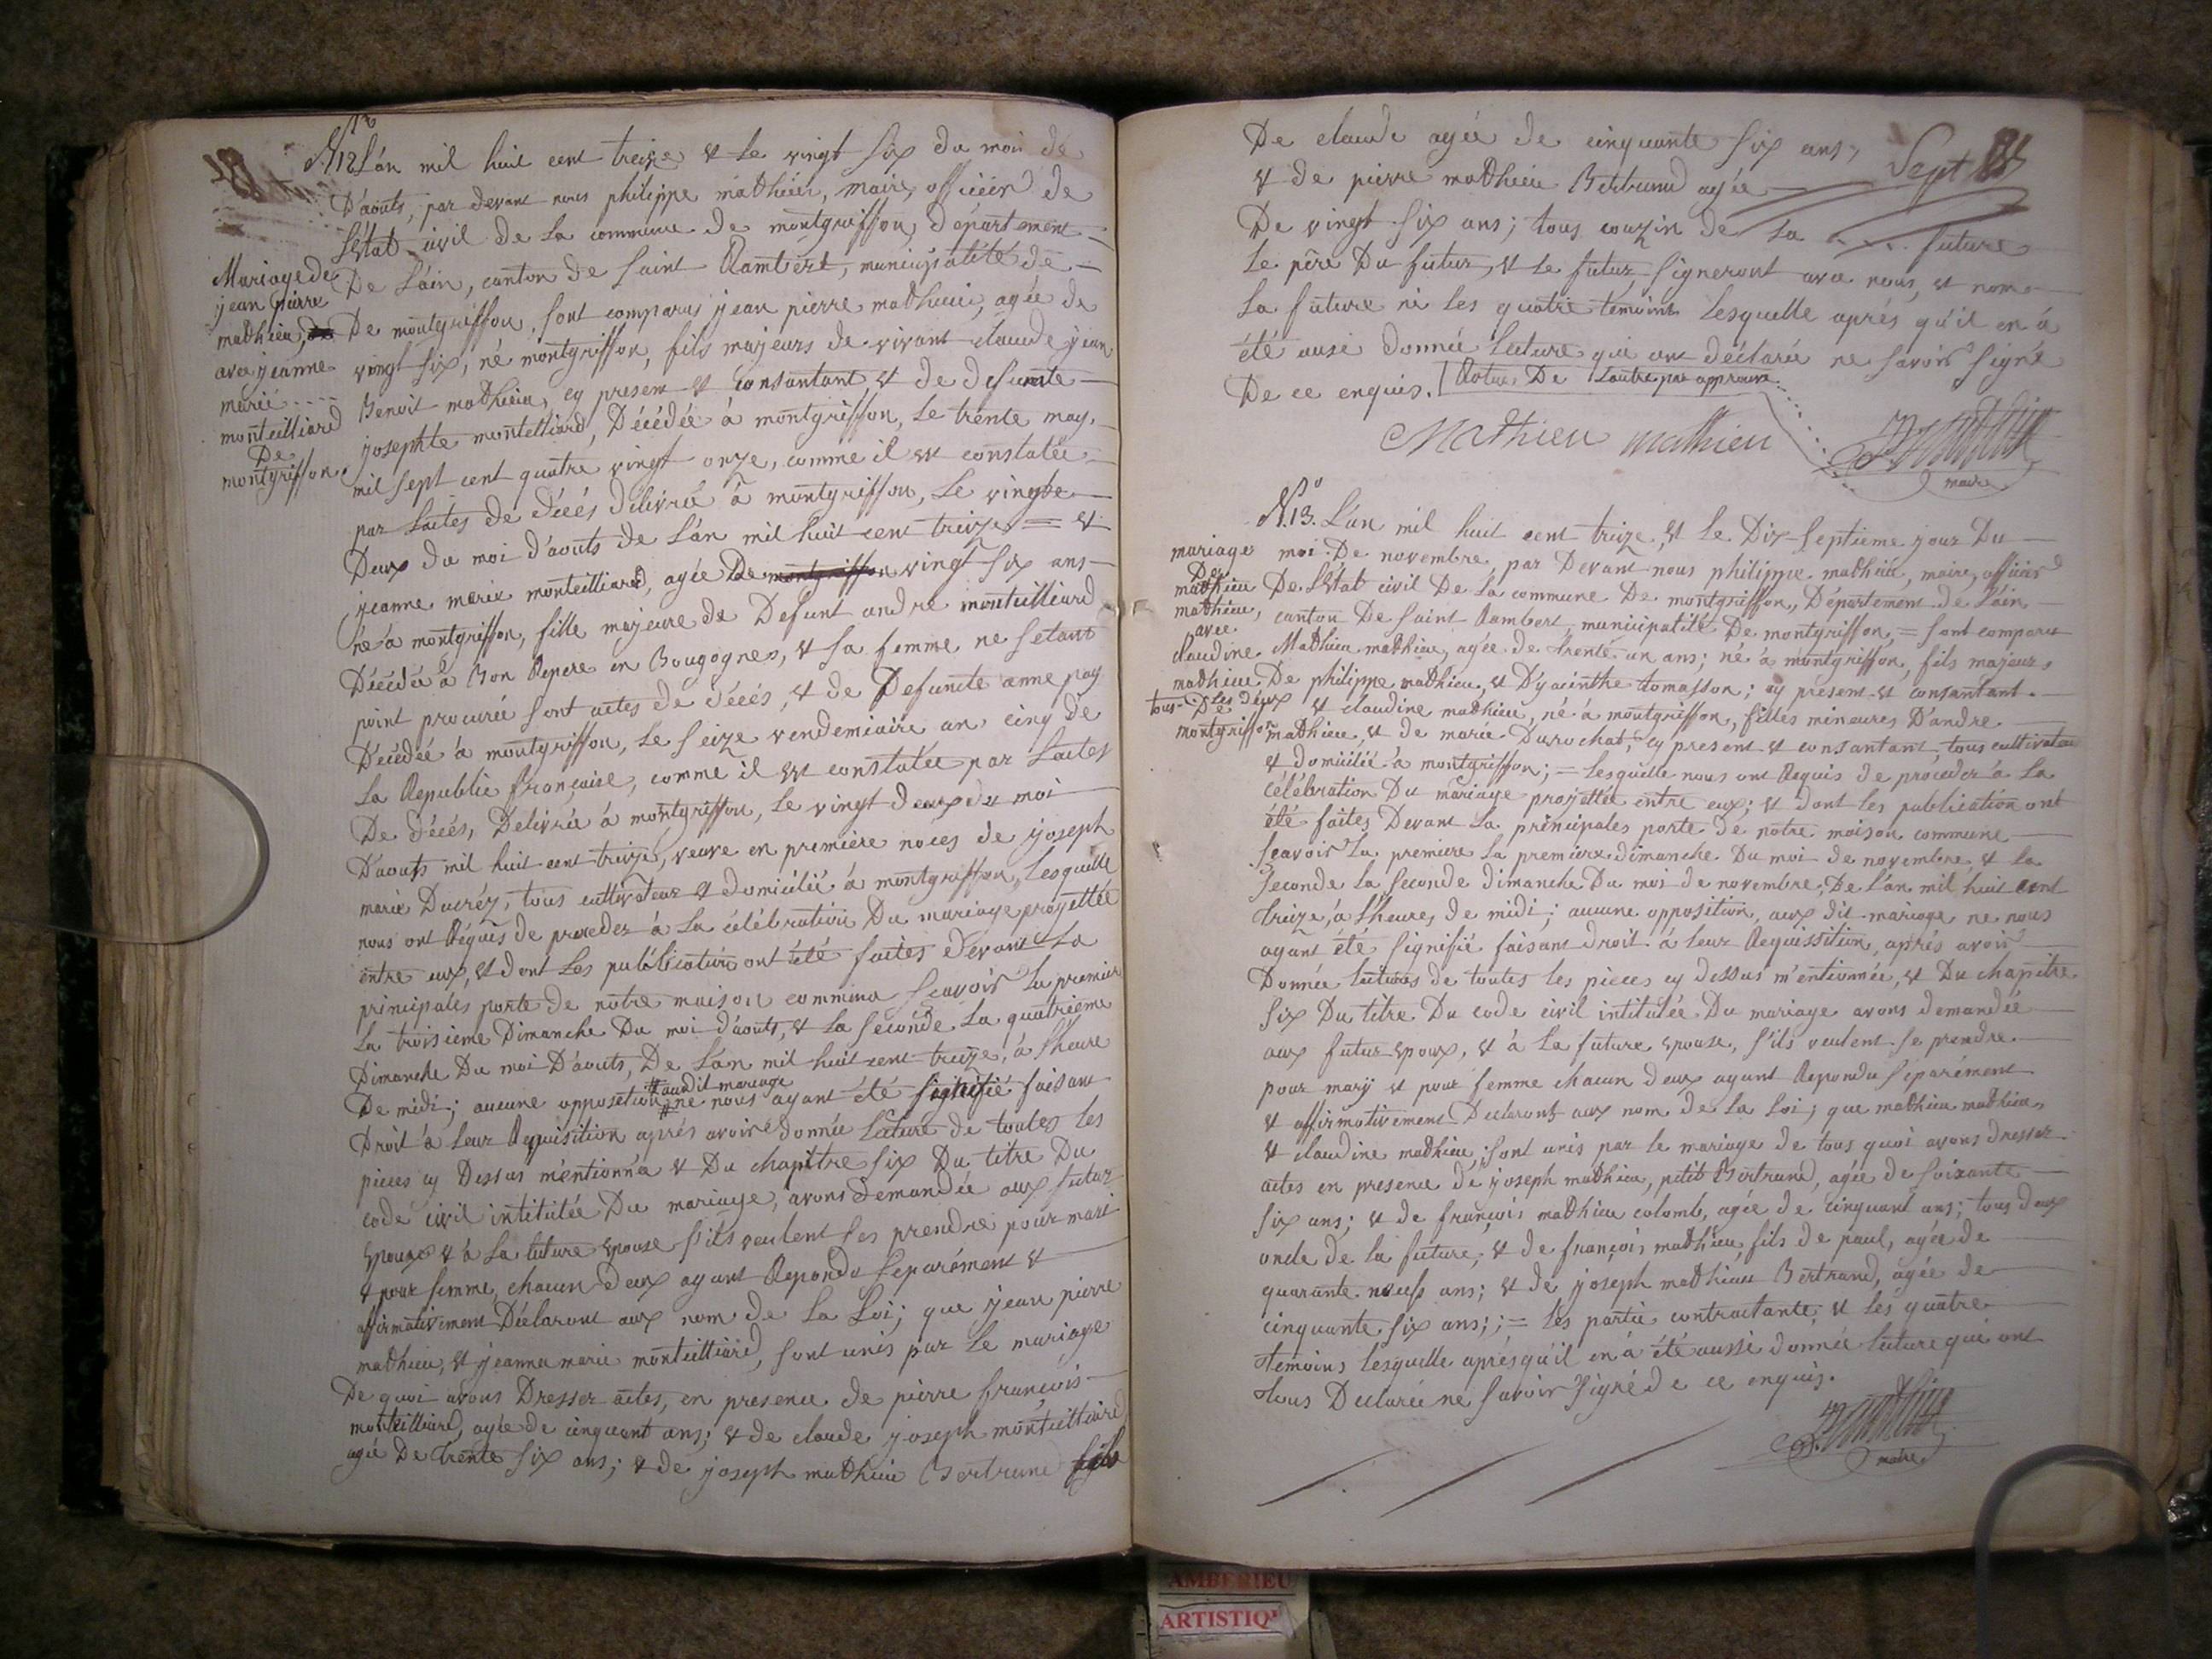 N.º 12 L'án mil huit cent treize & Le vingt six du moi de
D'aouts, par devant nous philippe mathieu, maire, officier de
L'état civil de La commune de montgriffon, départment
De L'áin, canton de saint Rambert, municipalité de
De montgriffon, sont comparus jean pierre mathieu, agée de
vingt six, né montgriffon, fils majeurs de vivant claude jean
Benoit mathieu, cy present & consantant & de defunte
josephte monteilliard, Décédée à montgriffon, Le trente may,
mil sept cent quatre vingt onze, comme il est constatée
par L'actes de décés délivrée à montgriffon, Le vingte
Deux du moi d'aouts de L'án mil huit cent treize = &
jeanne marie monteilliard, agée De montgriffon vingt six ans
né à montgriffon, fille majeure de Defunt andre monteilliard
Décédée à Bon Repere en Bougognes, & sa femme ne s'etant
point procurée sont actes de décés, & de Defuncte anne pay
Décédée à montgriffon, Le seize vendemiaire an cinq de
La Republic françaisse, comme il est constatée par L'actes
De décés, Délivrée à montgriffon, Le vingt deux du moi
D'aouts mil huit cent treize, veuve en premiere noces de joseph
marie Ducréz, tous cultivateur & domiciliée à montgriffon, Lesquelle
nous ont Réquis de proceder à La célébration Du mariage proyettée
entre eux, & dont Les publication ont été faites devant La
principales porte de nôtre maison commina sçavoir La premier
La troisieme Dimanche Du moi d'aouts, & La seconde La quatrieme
Dimanche Du moi D'aouts, De L'án mil huit cent treize, à L'heure
De midi; aucune opposition # audit mariage # ne nous ayant été signifié faisant
Droit à Leur Requisition aprés avoir donnée Lecture de toutes les
pieces cy Dessus mentionnéa & Du chapitre six Du titre Du
code civil intitulée Du mariage, avons demandée aux futur
Epoux & à La future Epouse s'ils veulent ses prendre pour mari
& pour femme, chacun deux ayant Repondu separément &
affirmativement Déclaront aux nom de La Loi; que jean pierre
mathieu, & jeanne marie monteilliard, sont unis par Le mariage
De quoi avons Dresser actes, en presence de pierre françois
monteilliard, agée de cinquant ans; & de claude joseph monteilliard
agée De trente six ans; & de joseph mathieu Bertrand fils
Mariage de
jean pierre
mathieu,
avec jeanne
marie ....
monteilliard
De
montgriffon.
De claude agée de cinquante six ans,
Sept
& de pierre mathieu Bertrand agée
De vingt six ans; tous couzin de La ..... future
Le père Du futur, & Le futur signeront avec nous, & nom
La future ni les quatre temoins Lesquelle aprés qu'il en à
été ausi donnée Lecture qui ont déclarée ne savoir signée
De ce enquis. Rotur De Lautre par approuvé
Mathieu mathieu
maire
N.º 13. L'án mil huit cent treize, & Le Dix septieme jour Du
moi De novembre, par Devant nous philippe mathieu, maire, officier
De L'état civil De La commune De montgriffon, Département de L'áin
canton De saint Rambert, municipalité De montgriffon, = sont comparu
Mathieu mathieu, agée de trente un ans; né à montgriffon, fils majeurs
De philippe mathieu, & D'yacinthe tomasson; cy present & consantant.
& claudine mathieu, né à montgriffon, filles mineures D'andre
mathieu, & de marie Durochat, cy present & consantant, tous cultivateur
& domiciliée à montgriffon; = Lesquelle nous ont Requis de proceder à La
célébration Du mariage proyettée entre eux; & dont les publication ont
été faites Devant La principales porte de nôtre maison commune
sçavoir La premiere La premiere dimanche Du moi de novembre, & La
seconde La seconde dimanche Du moi de novembre, De L'án mil huit cent
treize, à L'heure, de midi; aucune opposition, aux dit mariage ne nous
ayant été signifié faisant droit à leur Requissition, aprés avoir
Donnée Lectures de toutes les pieces cy dessus mentionnée, & Du chapitre
six Du titre Du code civil intitulée Du mariage avons demandée
aux futur Epoux, & à La future Epouse, s'ils veulent se prendre
pour marÿ & pour femme chacun deux ayant Repondu separément
& affirmativement Declaront aux nom de La Loi; que mathieu mathieu,
& claudine mathieu, sont unis par le mariage de tous quoi avons dresser
actes en presence de joseph mathieu, petit Bertrand, agée de soixante
six ans; & de françois mathieu colomb, agée de cinquant ans; tous deux
oncle de la future, & de françois mathieu, fils de paul, agée de
quarante neufs ans; & de joseph mathieu Bertrand, agée de
cinquante six ans; ; = les partie contractante, & les quatre
temoins Lesquelle aprés qu'il en à été aussi donnée Lecture qui ont
tous Declarée ne savoir signé de ce enquis.
maire
mariage
De
mathieu
mathieu,
avec
claudine
mathieu
tous Les deux
De
montgriffon
AMBERIEU
ARTISTIQ